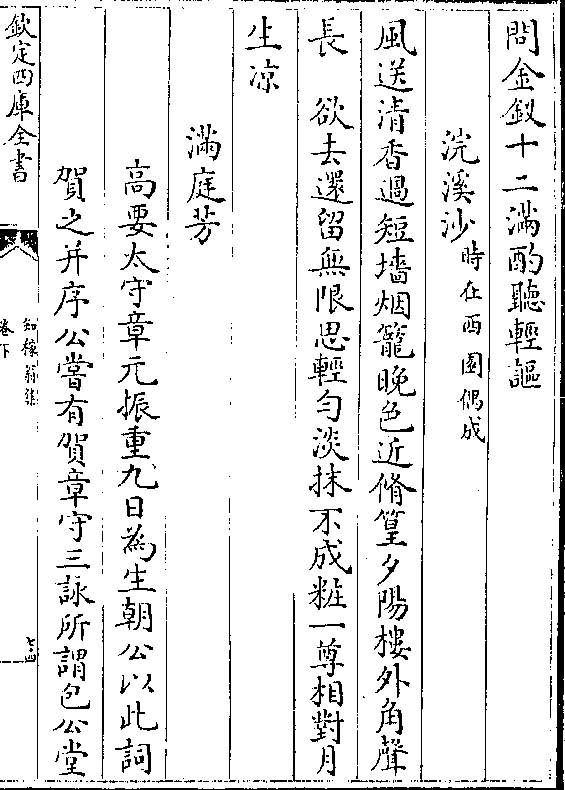 問金釵十二滿酌聽輕謳
浣溪沙時在西園偶成
風送清香過短墻烟籠晚色近脩篁夕陽樓外角聲
長　欲去還留無限思輕勻淡抹不成粧一尊相對月
生凉
滿庭芳
高要太守章元振重九日為生朝公以此詞
賀之并序公嘗有賀章守三詠所謂包公堂
欽定四庫全書
知稼翁集
卷下